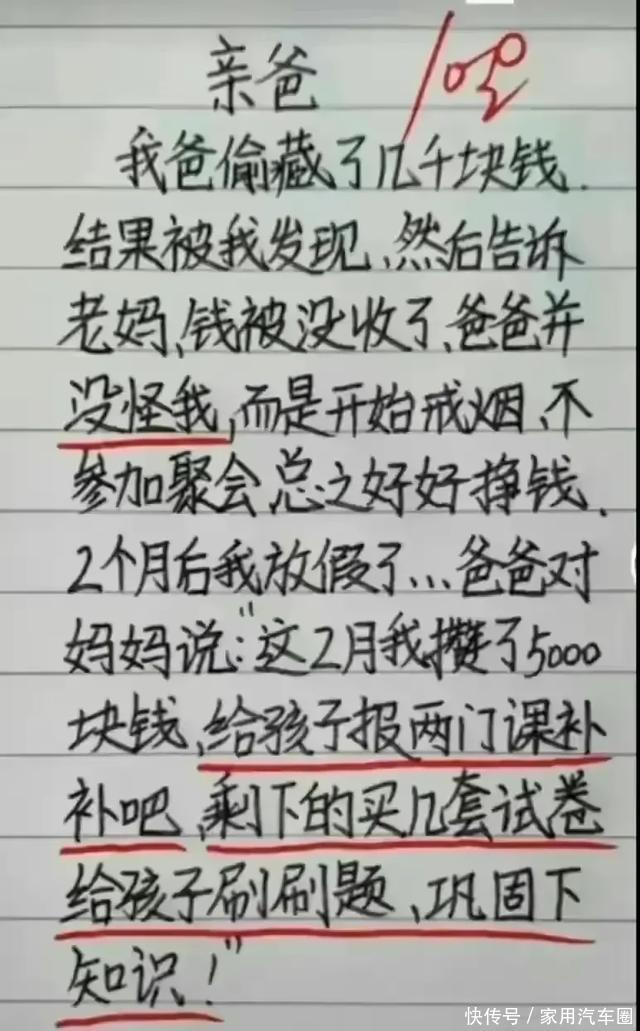 亲爸
100
我爸偷藏了几千块钱.
结果被我发现、然后告诉
老妈、钱被没收了、爸爸并
没怪我,而是开始戒烟、不
参加聚会总之好好挣钱.
2个月后我放假了...爸爸对
妈妈说:"这2月我攒了5000
块钱、给孩子报两门课补
补吧、剩下的买几套试卷
给孩子刷刷题、巩固下
知识!"
快传号/家用汽车圈